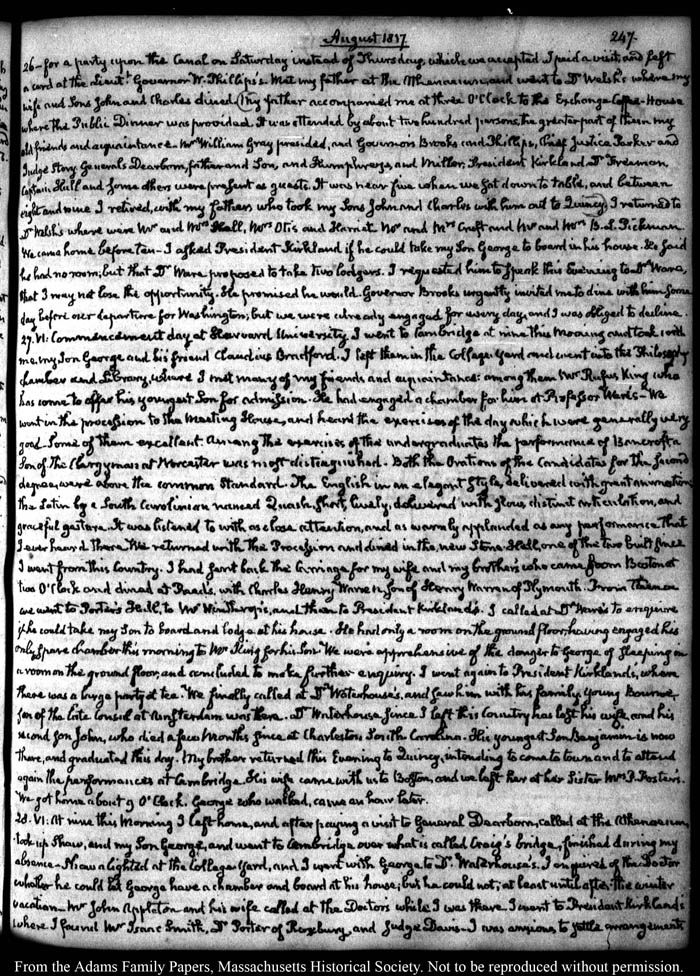 August 1817
247
26- for a party upon the Canal on Saturday instead of Thursday, which we accepted. I paid a visit, and left
a card at the Lieutt. Governor W. Phillips's. Met my father at the Athenaeum, and went to Dr Welsh's where my
wife and Sons John and Charles dined. My father accompanied me at three O'Clock to the Exchange Coffee-House
where the Public Dinner was provided. It was attended by about two hundred persons, the greater part of them my
old friends and acquaintance. Mr William Gray presided, and Governors Brooks and Phillips, Chief Justice Parker and
Judge Story, Generals Dearborn, father and Son, and Humphreys, and Miller, President Kirkland, Dr Freeman,
Captain Hull and some others were present as guests. It was near five when we sat down to table, and between
eight and nine I retired, with my father, who took my Sons John and Charles with him out to Quincy. I returned to
Dr Welsh's where were Mr and Mrs Hall, Mrs Otis and Harriet, Mr and Mrs Cruft and Mr and Mrs B. L. Pickman.
We came home before ten- I asked President Kirkland if he could take my Son George to board in his house. He said
he had no room; but that Dr Ware proposed to take two lodgers. I requested him to speak this Evening to Dr Ware,
that I may not lose the opportunity. He promised he would. Governor Brooks urgently invited me to dine with him some
day before our departure for Washington; but we were already engaged for every day, and I was obliged to decline.
27. VI: Commencement day at Harvard University. I went to Cambridge at nine this Morning and took with
me, my Son George and his friend Claudius Bradford. I left them in the College yard and went into the Philosophy
chamber and Library, where I met many of my friends and acquaintance: among them Mr Rufus King who
has come to offer his youngest Son for admission. He had engaged a chamber for him at Professor Ware's- We
went in the procession to the Meeting House, and heard the exercises of the day which were generally very
good. Some of them excellent. Among the exercises of the undergraduates the performance of Bancroft a
Son of the Clergyman at Worcester was most distinguished. Both the Orations of the Candidates for the second
degree, were above the common Standard. The English in an elegant Style, delivered with great animation;
the Latin by a South Carolinian named Quash, short, lively, delivered with slow, distinct articulation, and
graceful gesture. It was listened to with as close attention, and as warmly applauded as any performance that
I ever heard there. We returned with the Procession and dined in the new Stone Hall, one of the two built since
I went from this Country. I had sent back the Carriage for my wife and my brother's who came from Boston at
two O'Clock and dined at with Charles Henry Warren, Son of Henry Warren of Plymouth. From thence
we went to Porter's Hall, to Mr Winthrop's, and then to President Kirkland's. I called at Dr Ware's to enquire
if he could take my Son to board and lodge at his house. He had only a room on the ground floor, having engaged his
only spare chamber this morning to Mr King for his Son. We were apprehensive of the danger to George of sleeping in
a room on the ground floor, and concluded to make further enquiry. I went again to President Kirkland's, where
there was a large party at tea. We finally called at Dr Waterhouse's, and saw him with his family, young Bourne,
son of the late Consul at Amsterdam was there. Dr Waterhouse since I left this Country has lost his wife, and his
second son John, who died a few Months since at Charleston South Carolina. His youngest Son Benjamin is now
there, and graduated this day. My brother returned this Evening to Quincy, intending to come to town and to attend
again the performances at Cambridge. His wife came with us to Boston, and we left her at her Sister Mrs J. Foster's.
We got home about 9 O'Clock. George who walked, came an hour later.
28. VI: At nine this Morning I left home, and after paying a visit to General Dearborn, called at the Athenaeum
took up Shaw, and my Son George, and went to Cambridge over what is called Craig's bridge, finished during my
absence- Shaw alighted at the College Yard, and I went with George to Dr Waterhouse's. I enquired of the Doctor
whether he could let George have a chamber and board at his house; but he could not; at least until after the winter
vacation- Mr John Appleton and his wife called at the Doctors while I was there. I went to President Kirkland's
where I found Mr Isaac Smith, Dr Porter of Roxbury, and Judge Davis- I was anxious to settle arrangements
From the Adams Family Papers, Massachusetts Historical Society. Not to be reproduced without permission.